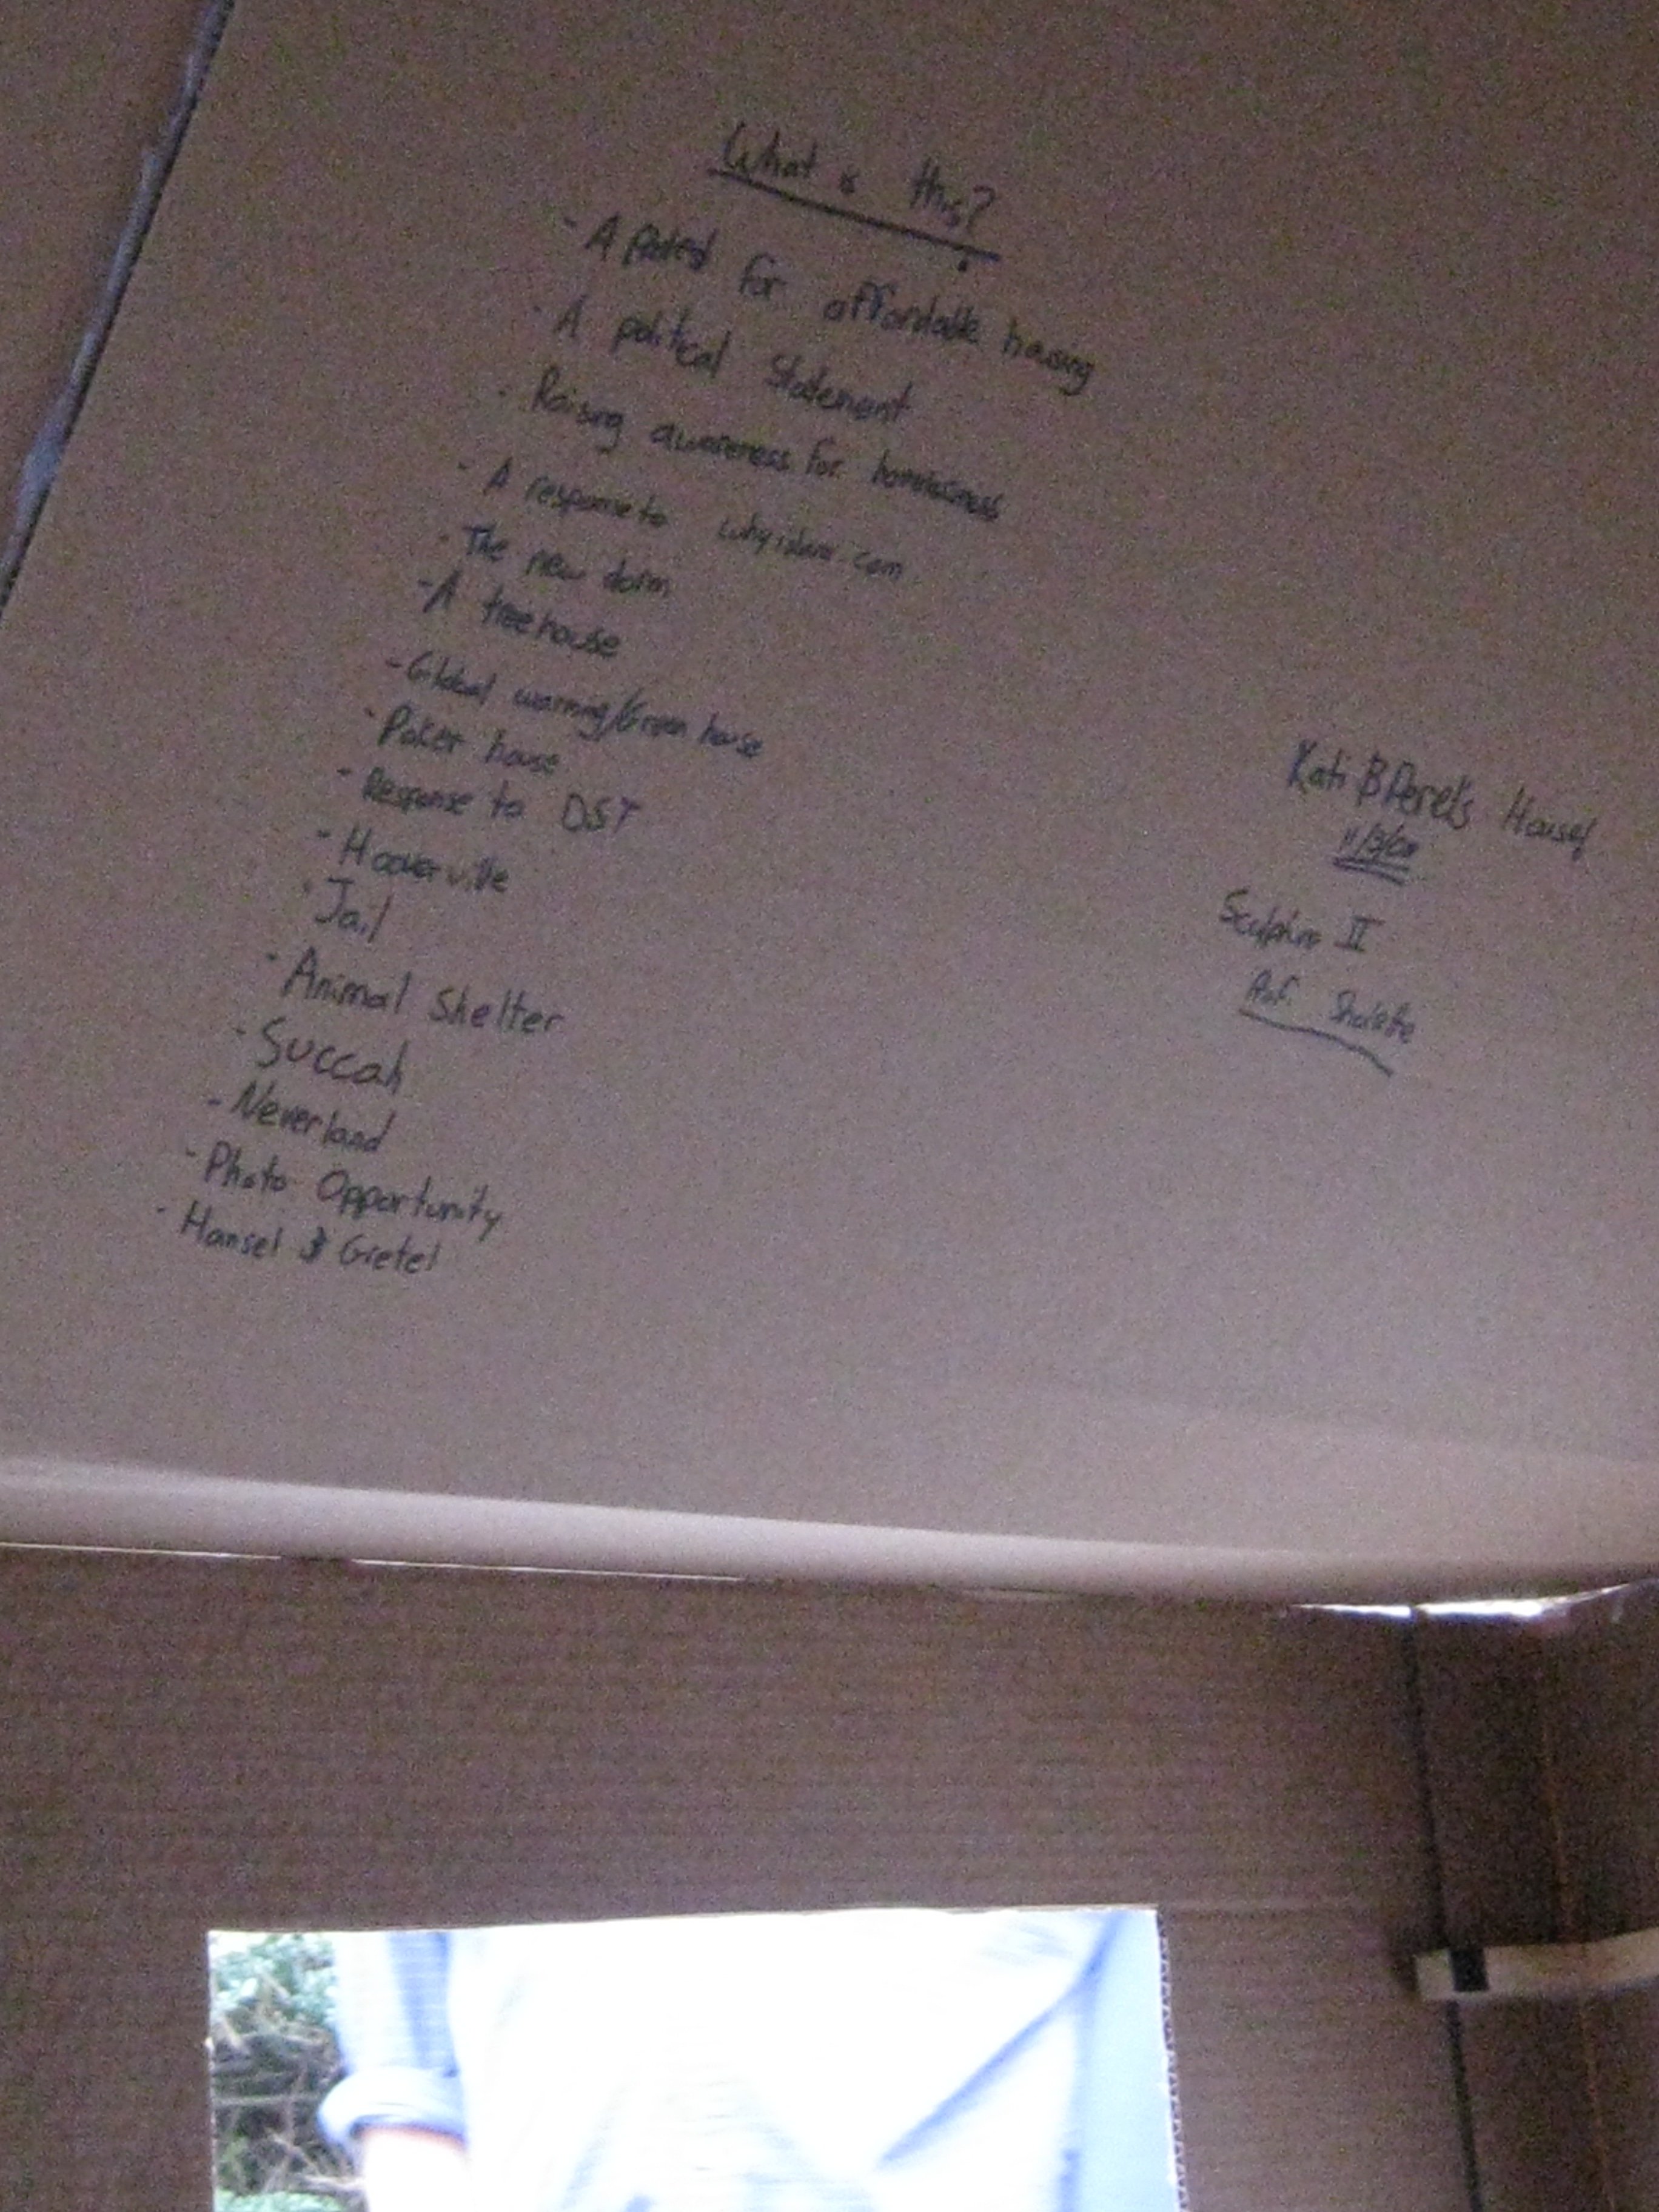 What is this?
- A protest for affordable housing
- A political Statement
- Raising awareness for homelessness
- A response to whyislam.com
- The new dorm
- A treehouse
- Global warming/Green house
- Poker house
- Response to DST
- Hooverville
- Jail
- Animal Shelter
- Succah
- Neverland
- Photo Opportunity
- Hansel & Gretel
Kati B House!
Sculpture II
Prof.